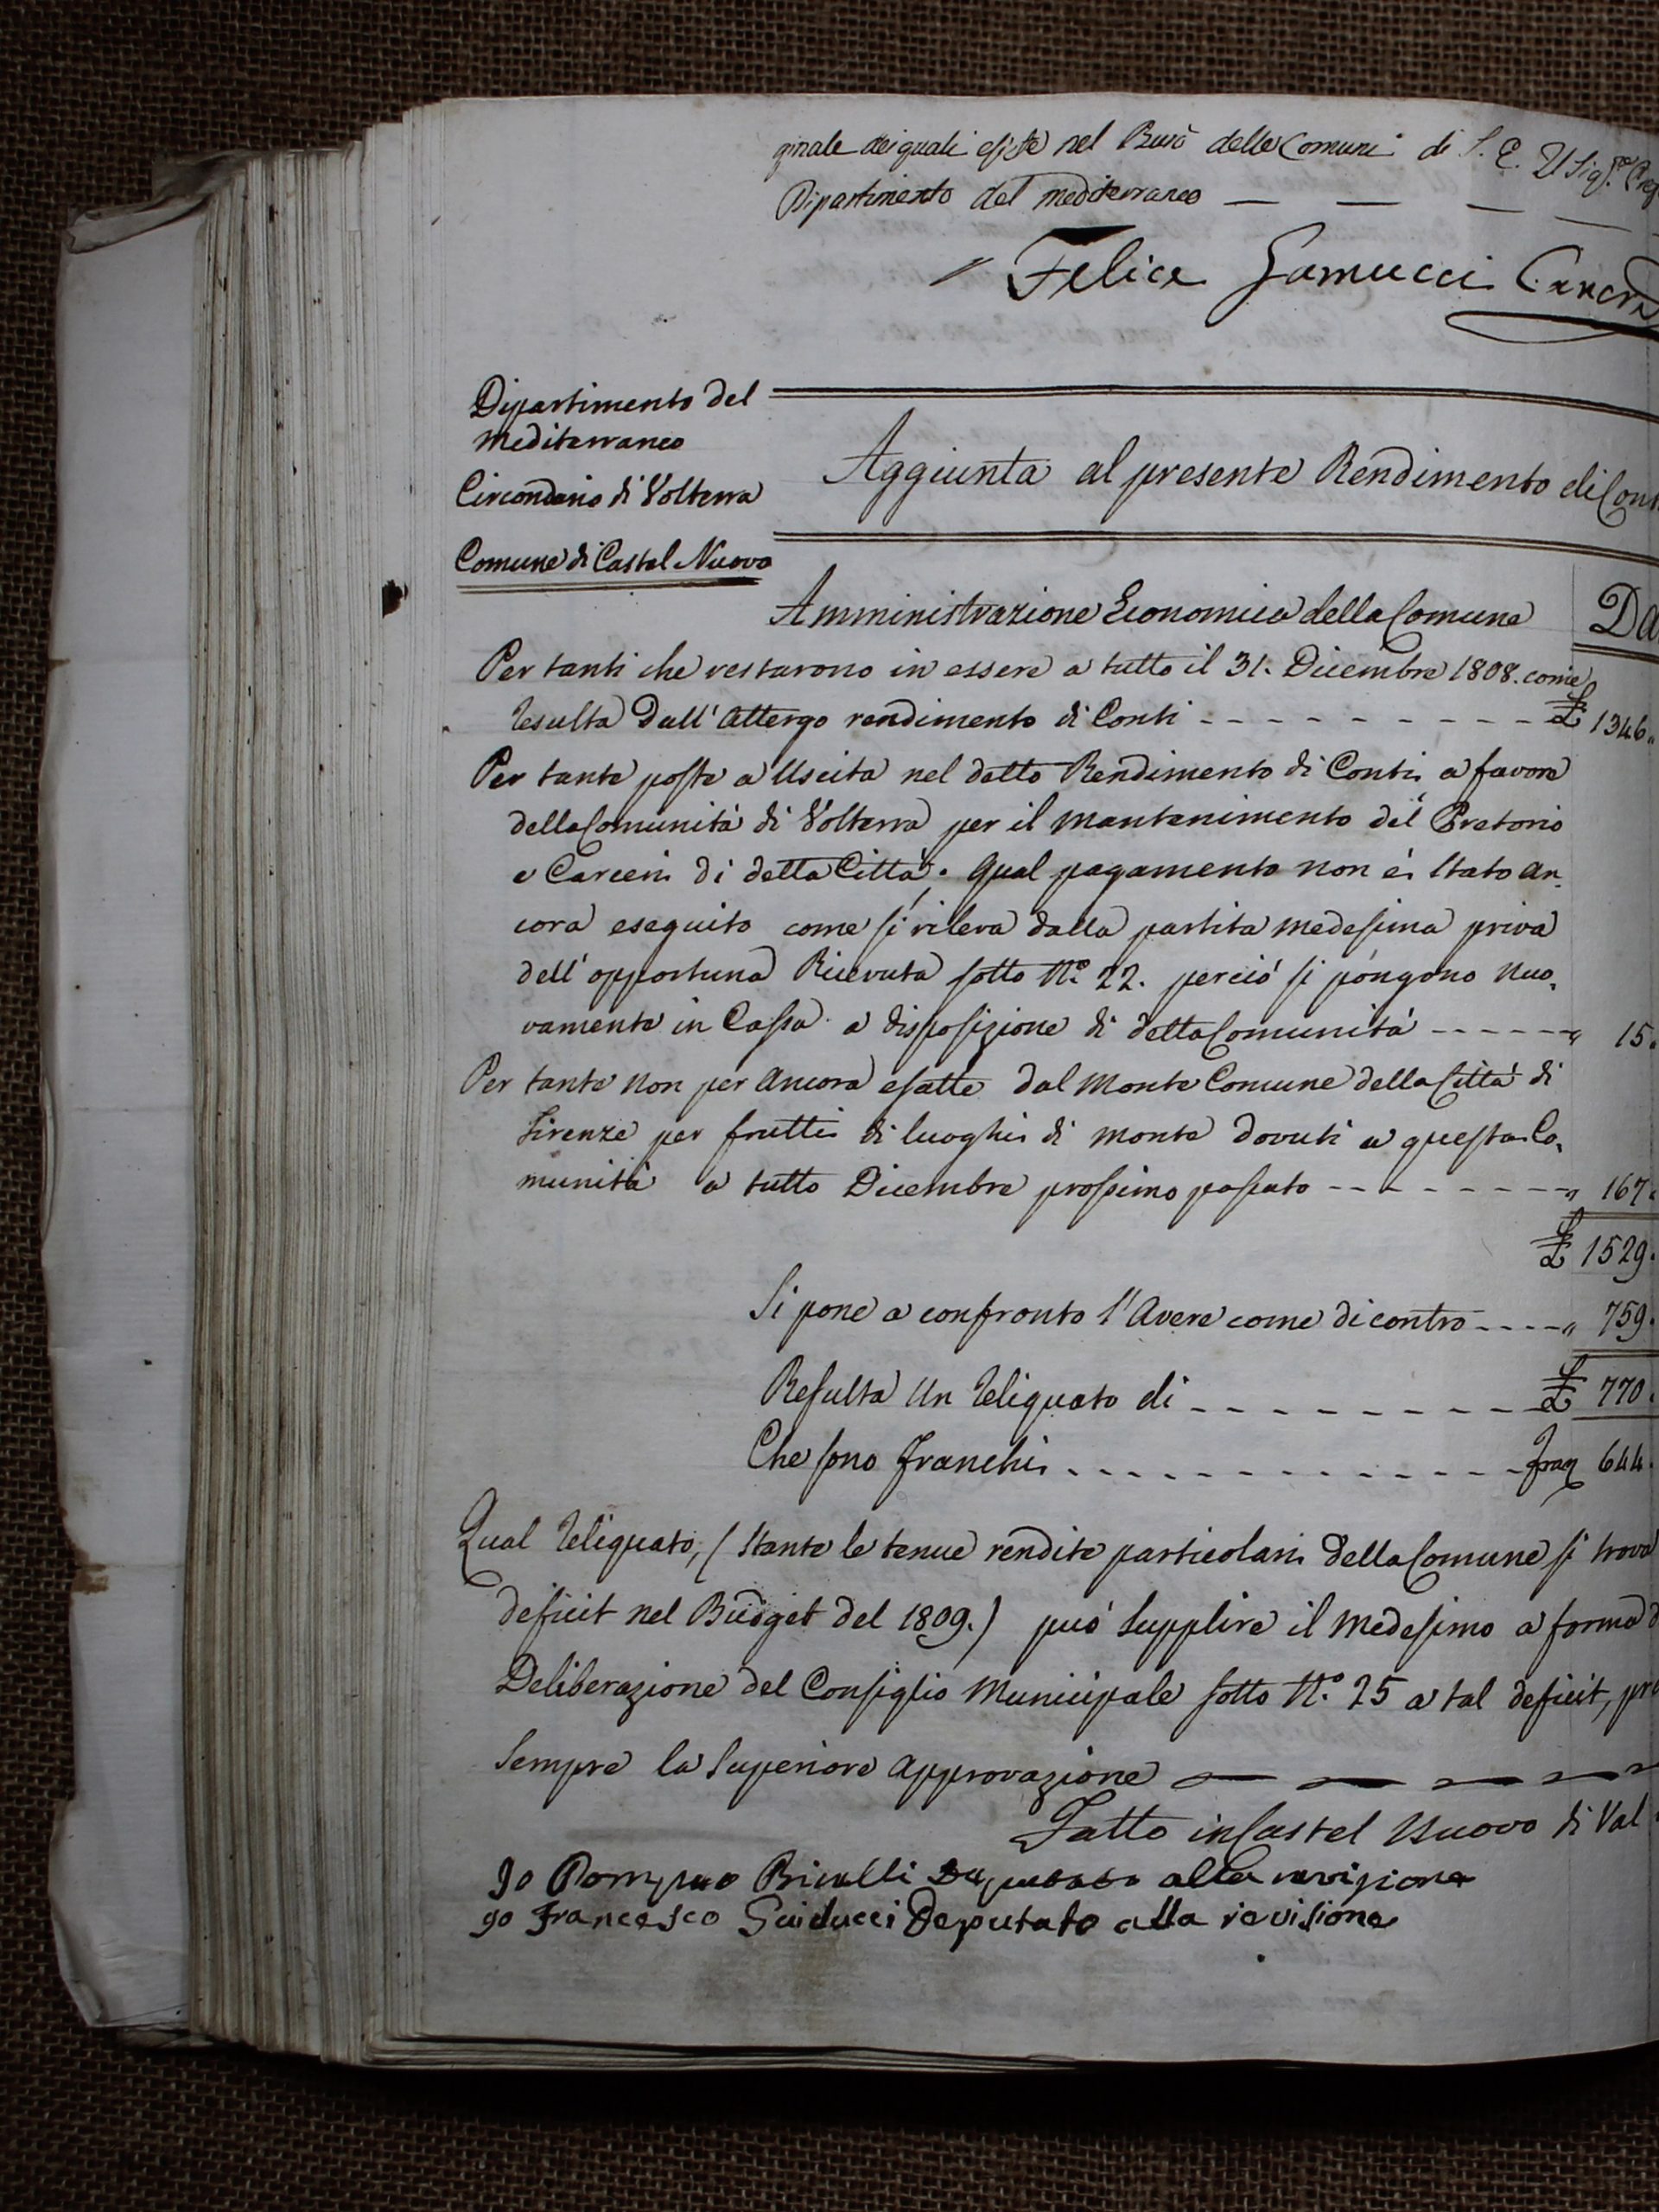 ginale dei quali esiste nel Burò delle Comuni di S. E. Il Sig.re
Dipartimento del mediterraneo
Felice Jamucci
Dipartimento del
Mediterraneo
Circondario di Volterra
Comune di Castel Nuovo
Aggiunta al presente Rendimento di Con
Amministrazione Economica della Comune Da
Per tanti che restarono in essere a tutto il 31. Dicembre 1808. come
resulta dall'attergo rendimento di Conti - - - - - - - - - £ 1346.
Per tante poste a Uscita nel detto Rendimento di Conti a favore
della Comunità di Volterra per il mantenimento del Pretorio
e Carceri di detta Città. Qual pagamento non è stato an-
cora eseguito come si rileva dalla partita medesima priva
dell'opportuna Ricevuta sotto N.o 22. perciò si pongono nuo-
vamente in Cassa a disposizione di detta Comunità - - - - - - " 15.
Per tante non per ancora esatte dal Monte Comune della Città di
Firenze per frutti di luoghi di monte dovuti a questa Co-
munità a tutto Dicembre prossimo passato - - - - - - - - " 167.
£ 1529.
Si pone a confronto l'Avere come di contro - - - - " 759.
Resulta un reliquato di - - - - - - - - - £ 770.
Che sono Franchi - - - - - - - - - - - - - Fran 644.
Qual reliquato, (stante le tenue rendite particolari della Comune si trova
deficit nel Budget del 1809.) può supplire il medesimo a forma d
Deliberazione del Consiglio Municipale sotto N.o 25 a tal deficit, pre
sempre la superiore approvazione
Fatto in Castel Nuovo di Val
Io Pompeo Deputato alla revisione
Io Francesco Guiducci Deputato alla revisione